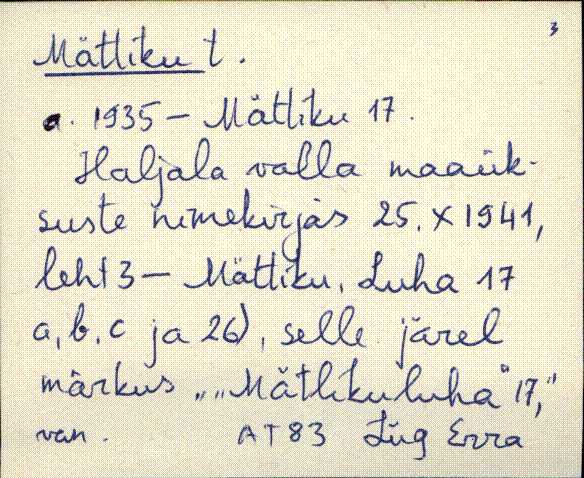 3
Mättiku t.
a. 1935 – Mättiku 17.
Haljala valla maaük-
suste nimekirjas 25. X 1941,
leht 3 – Mättiku, Luha 17
a, b, c ja 26), selle järel
märkus „„Mätlikuluha" 17,"
van. AT 83 Lüg Erra